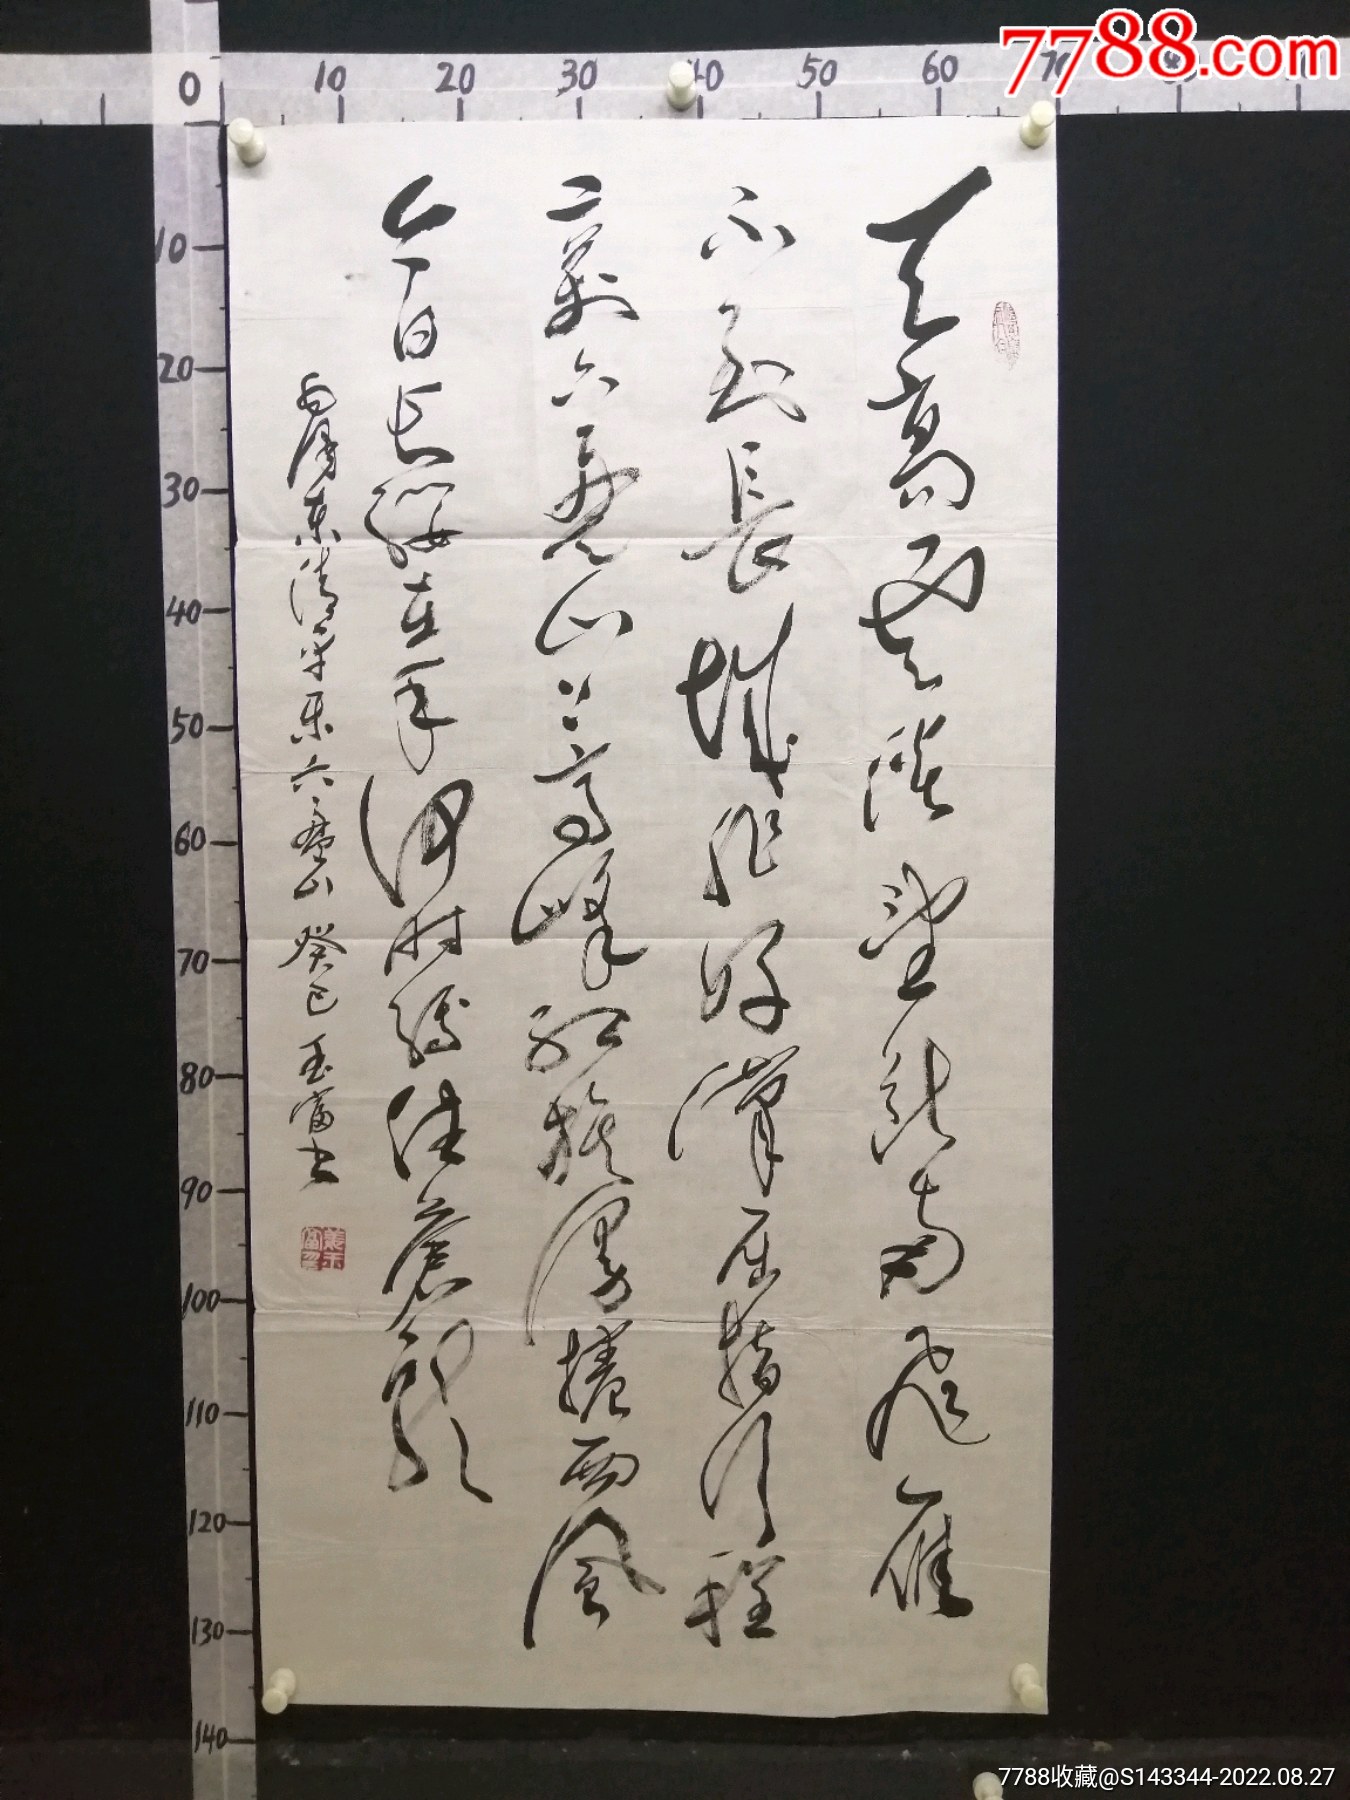 7788.com
0 10 20 30 40 50 60 70
10
20
30
40
50
60
70
80
90
100
110
120
130
140
天高雲淡望斷南飛雁
不到長城非好漢屈指行程
二萬六盤山上高峰紅旗漫捲西風
今日长纓在手何時縛住蒼龍
毛澤東清平乐六盘山 癸巳 玉富书
7788收藏@S143344-2022.08.27